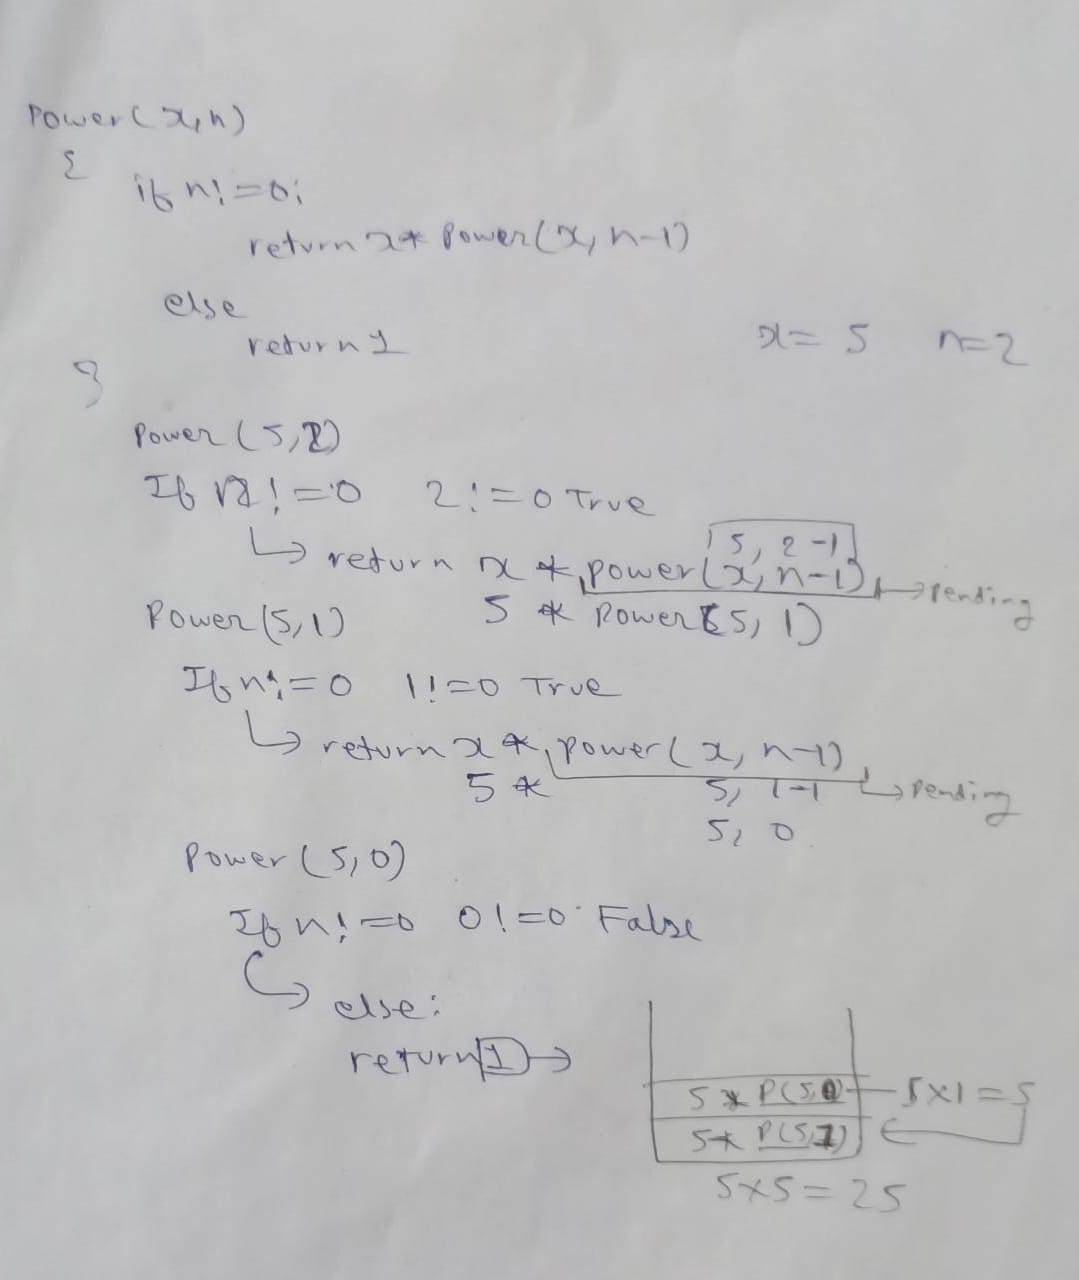 Power(x,n)
{
if n!=0;
return x* Power(x, n-1)
else
return 1
x= 5 n=2
}
Power (5,2)
If n!=0 2!=0 True
5, 2-1
return x * power(x, n-1) → pending
5 * Power(5, 1)
Power(5,1)
If n!=0 1!=0 True
return x *, power(x, n-1)
5 * 5, 1-1 → Pending
5, 0
Power (5,0)
If n!=0 0!=0 False
else:
return 1 →
5 * P(5,0) 5x1=5
5* P(5,1)
5x5=25